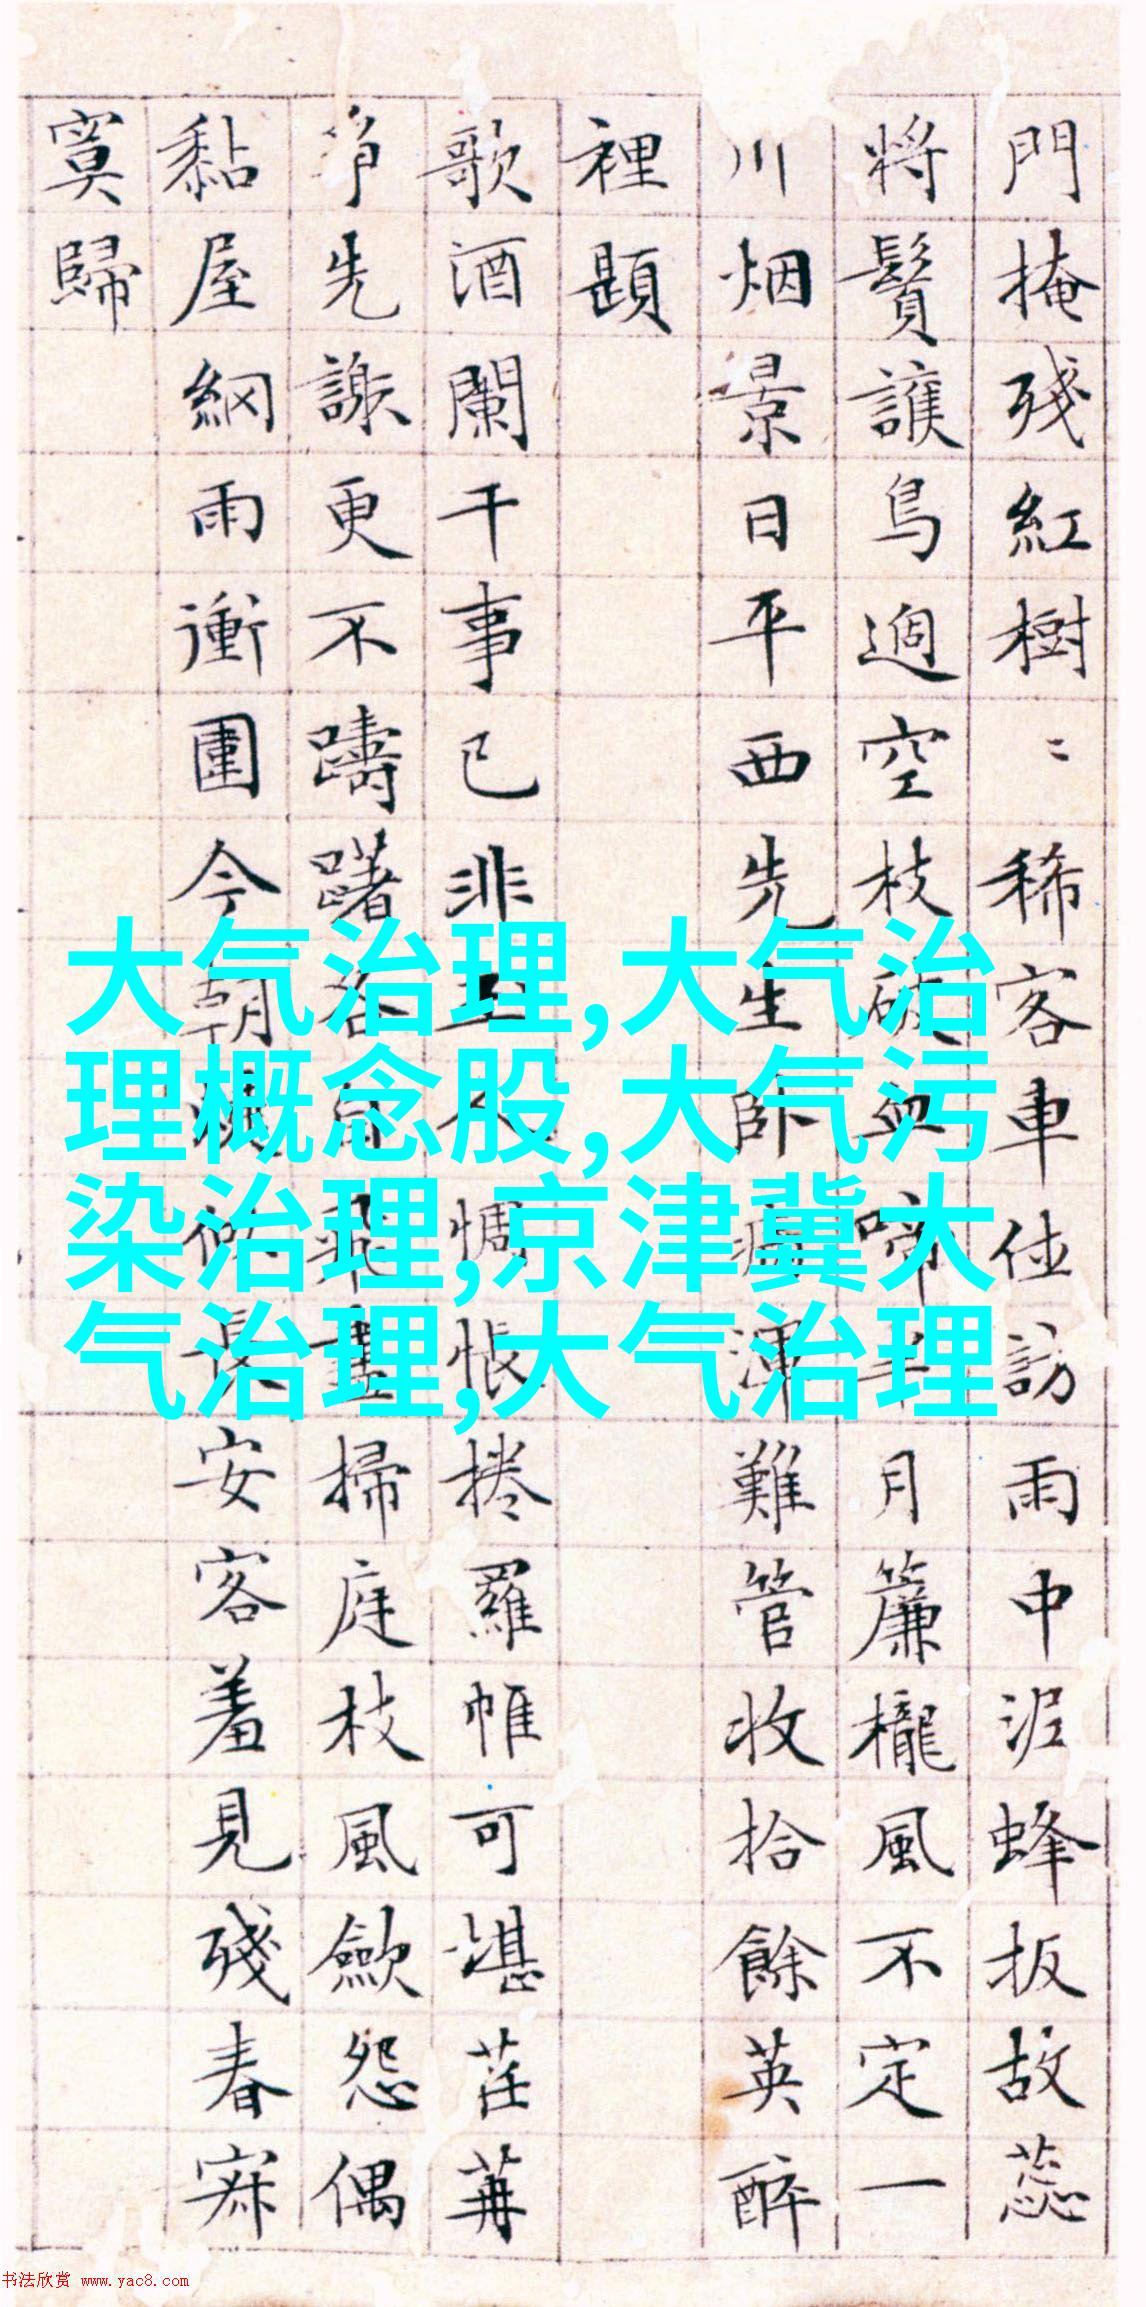 門掩殘紅樹〻稀客車佐訪雨中泥蜂扳故蕊
將鬢護鳥過空枝破血啼半月簾櫳風不定一
川烟景日平西先生卧病渾難管收拾餘英醉
裡題
歌酒闌干事已非五人惆悵捲羅帷可堪茬苒
爭先謝更不躊躇各自飛晝掃庭枝風歛怨偶
黏屋網雨衝圍今朝似長安客羞見殘春寂
寞歸
大气治理,大气治
理概念股,大气污
染治理,京津冀大
气治理,大气治理
书法欣赏 www.yac8.com